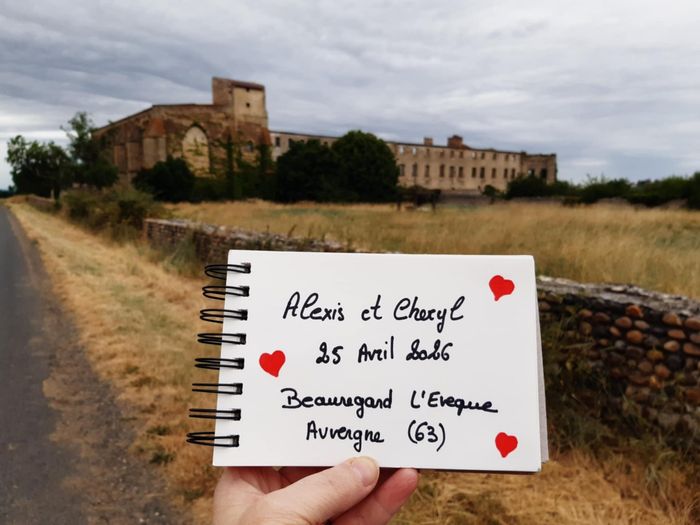 Alexis et Cheryl
25 Avril 2026
Beauregard L'Eveque
Auvergne (63)